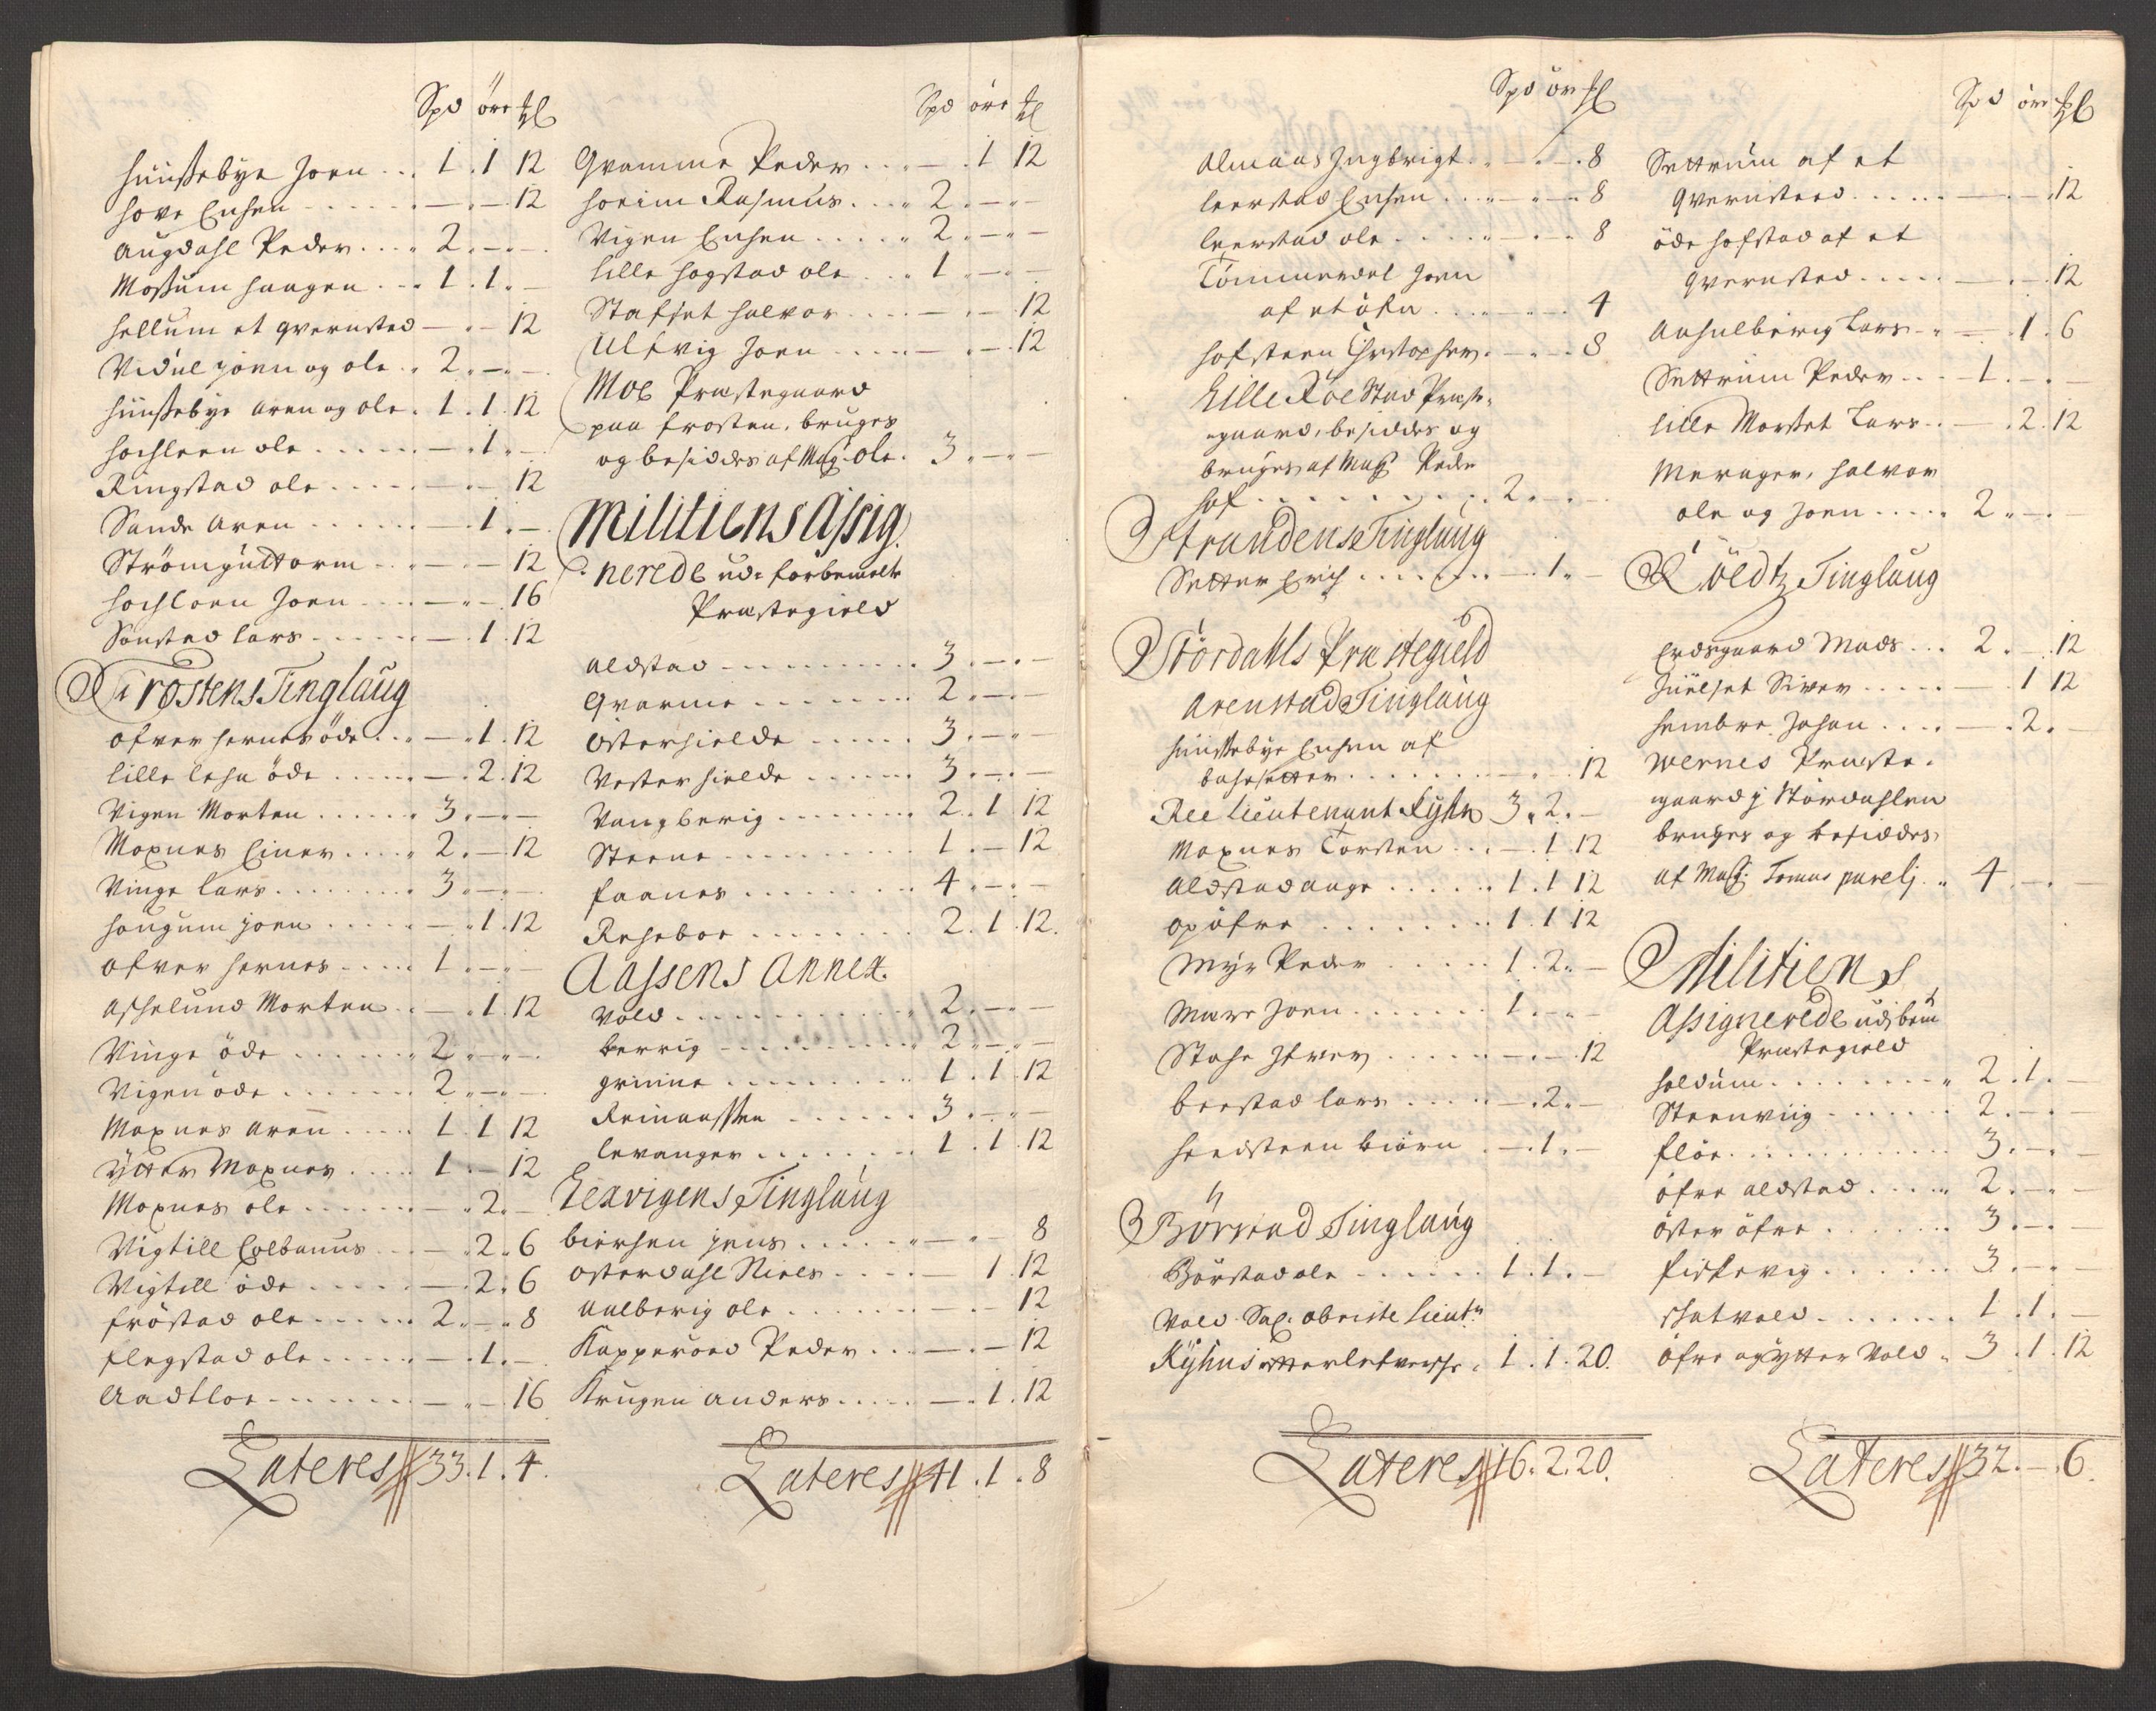 Spd öre ₶
Hunssebye Joen . . . 1 . 1 12
Hove Ensen - . - . 12
Augdahl Peder . . . 2 . - . -
Mossum Haagen . . 1 . 1 . -
Hellum et qvernsted - . - 12
Vidul joen og ole . . 2 . - . -
Hunssebye Aren og ole . 1 . 1 . 12
Hochleen ole . . . . - . 1 . -
Ringstad ole . . . . - . - 12
Sande Aren . . . . - . 1 . -
Strömguttorm . . - . - 12
Hochloen Joen - . - . 16
Sönsted lars . . . - . 1 . 12
Frostens Tinglaug
ofver hernes öde . . . - . 1 . 12
lille lehn öde . . . - . 2 . 12
Vigen Morten . . . . . 3 . - . -
Moxnes Einer . . . . 2 . - 12
Vinge lars . . . . . 3 . - . -
Haugum joen . . . . - . 1 . 12
ofver hernes . . . . 1 . - . -
Asschelund Morten . . - . 1 . 12
Vinge öde . . . . . 2 . - . -
Vigen öde . . . . . 2 . - . -
Moxnes Aren . . . . 1 . 1 12
ytter Moxnes . . . . 1 . - 12
Moxnes ole . . . . - . 2 . -
Vigtill Colbanus . . - . 2 . 6
Vigtill öde . . . . - . 2 . 6
fröstad ole . . . . . 2 . - . 8
flegstad ole . . . . - . 1 . -
Aadtloe . . . . . - . - . 16
Lateres 33 . 1 . 4 .
Spd öre ₶
Qvamme Peder . . . - . 1 12
Horim Rasmus . . . 2 . - . -
Vigen Ensen . . . . 2 . - . -
lille hogstad ole . . . 1 . - . -
Stafset halvor . . . - . - . 12
Ulfvig Joen . . . . - . - . 12
Moe Præstegaard
paa frosten, bruges
og besiddes af Mag: ole . 3 . - . -
Militiens Assig
nerede ud: forbemelte
Præstegield
Aldstad - - - - - 3 . - . -
Qvarme - - - - 2 . - . -
österhielde . . . . . 3 . - . -
Vesterhielde . . . . . 3 . - . -
Vangberig . . . . . 2 . 1 12
Steene . . . . . . 1 . - 12
faanes . . . . . . 4 . - . -
Reheboe . . . . . 2 . 1 . 12 .
Aassens Annex .
Vold . . . . . . . 2 . - . -
berrig . . . . . . 2 . - . -
grinne . . . . . . 1 . 1 . 12
Reinaassen . . . . . 3 . - . -
levanger . . . . . . 1 . 1 . 12
Lexvigens Tinglaug
biersen jens . . . . . - . - 8
osterdahl Niels . . . - 1 . 12
Aalberig ole . . . . - . - 12
Kapperoed Peder . . . - . - 12
Krugen Anders . . . . - . 1 . 12
Lateres 41 . 1 . 8
Spd öre ₶
Almaas Ingbrigt . . - . - . 8
leerstad Ensen . . . - . - 8
leerstad ole . . . . - . - 8
Tömmerdal Joen
af et öfn . . . . . - . 4
hofsteen Christopher . - . - . 8
Lille Röe Stad Præste-
-gaard, besiddes og
bruges af Mag: Peder
hof . . . . . . . . 2 . - . -
Strandens Tinglaug
Setter Erich . . . . . - . 1 . -
Stördahls Præstegield
Arenstad Tinglaug
Hunssebye Ensen af
bahesetter . . . . . - . 12
Ree lieutenant Kyhn 3 . 2 . -
Moxnes Torsten . . . - . 1 12
Aldstad aage . . . . 1 . 1 12
opöfre . . . . . . . 1 . 1 12
Myr Peder . . . . . 1 . 2 . -
Mære Joen . . . . . 1 . - . -
Stahe Iver . . . . . - . - . 12
beerstad lars . . . . - . 2 . -
heedsteen biörn . . - . 1 . -
Börstad Tinglaug
Börstad ole . . . . . 1 . 1 . -
Vold Sal: obriste lieut:
Kyhns efterleverske . 1 . 1 . 20 .
Lateres 16 . 2 . 20 .
Spd öre ₶
Settrum af et
qvernsted . . . . . - . - . 12
öde hofstad af et
qvernsted . . . . - . - . 12
Auhulberig Lars . . - . 1 . 6
Settrum Peder . . . - 1 . - . -
lille Morset Lars . . - . 2 . 12
Merager, halvor
ole og Joen . . . . . 2 . - . -
Röldtz Tinglaug
Erdsgaard Mads . . . 2 . - . 12
Juelset Siver . . . . - . 1 12
hembre Johan . . . . - . 2 . -
Wernes Præste-
gaard j Stördahlen
bruges og besiddes
af Mag: Tomas parelj . . 4 . - . -
Militiens
Assignerede udj bem:
Præstegield
Haldum . . . . . . . 2 . 1 . -
Steenviig . . . . . . 2 . - . -
flör . . . . . . . . 3 . - . -
öfre Aldstad . . . . . 2 . - . -
öster öfre . . . . . . 3 . - . -
fiskevig . . . . . . 3 . - . -
Schatvold . . . . . . 1 . 1 . -
öfre og ytter Vold . 3 . 1 . 12
Lateres 32 . - . 6 .